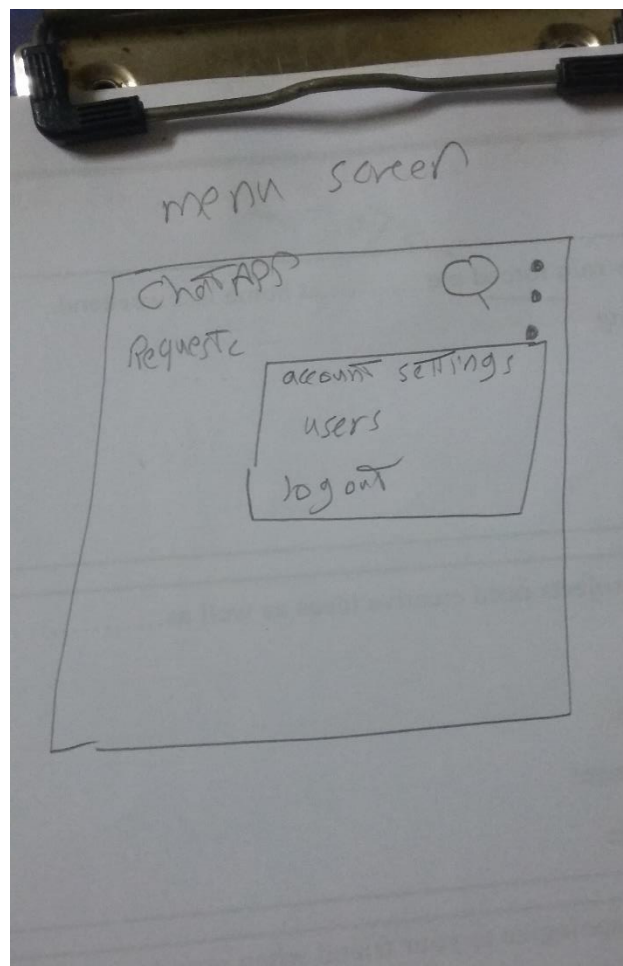 menu screen
Chat APS
Requests
account settings
users
log out